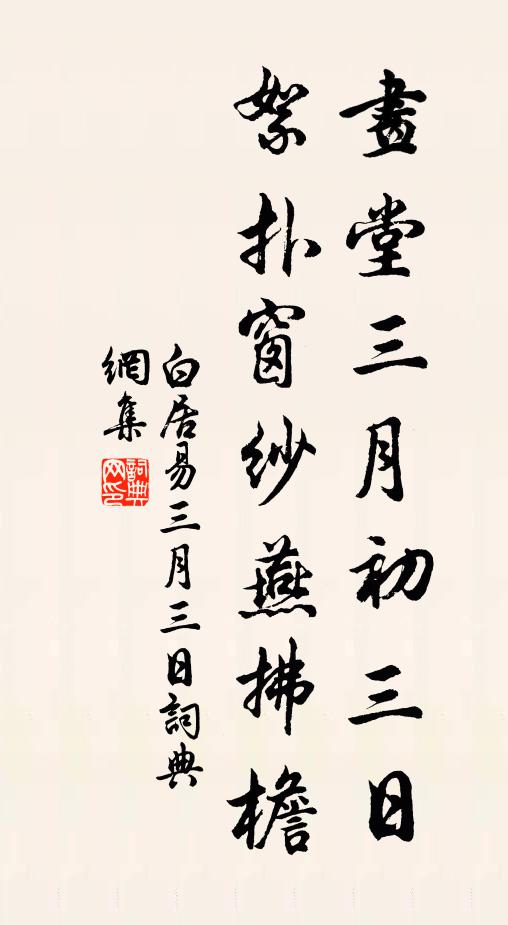 畫堂三月初三日
絮扑窗紗燕拂檐
白居易三月三日詞典
網集
詞典网印